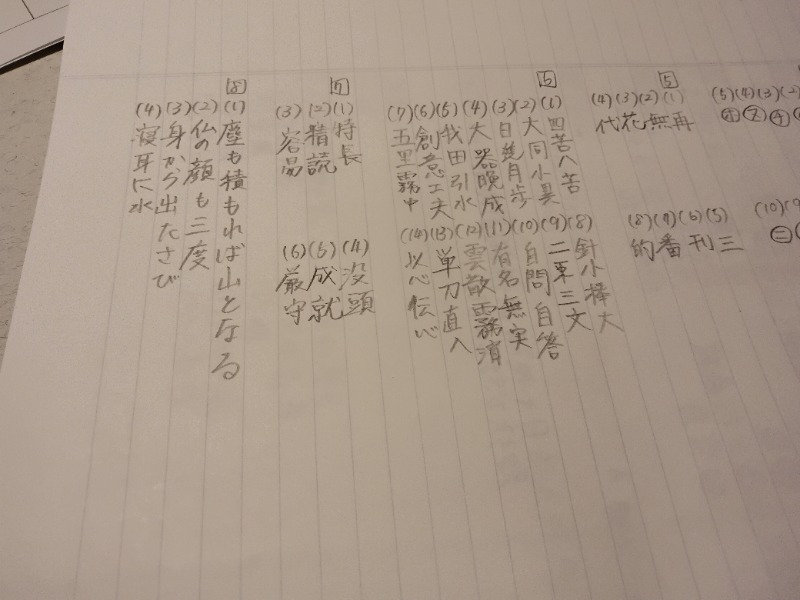 (5)(4)(3)(2)
(10)(9
㊁
5
(1)再
(2)無
(3)花
(4)代
(5)三
(6)刊
(7)番
(8)的
6
(1)四苦八苦
(2)大同小異
(3)日進月歩
(4)大器晩成
(5)我田引水
(6)創意工夫
(7)五里霧中
(8)針小棒大
(9)二束三文
(10)自問自答
(11)有名無実
(12)雲散霧消
(13)単刀直入
(14)以心伝心
7
(1)特長
(2)精読
(3)容易
(4)没頭
(5)成就
(6)厳守
8
(1)塵も積もれば山となる
(2)仏の顔も三度
(3)身から出たさび
(4)寝耳に水